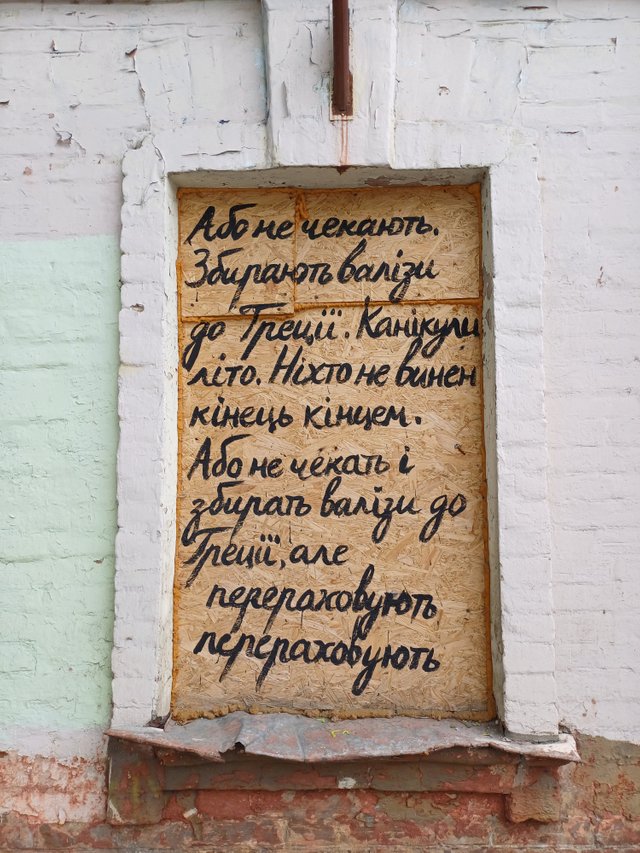 Або не чекають.
Збирають валізи
до Греції. Канікули
літо. Ніхто не винен
кінець кінцем.
Або не чекать і
збирать валізи до
Греції, але
перераховують
перераховують